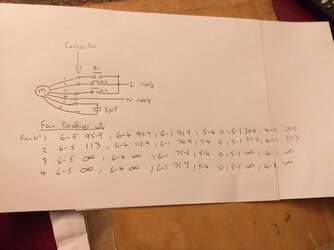 Connector
R1
L supply
N supply
M
5µF
Fan Readings Ω
Fan Nº 1 6-5 95.9, 6-4 95.7, 6-1 91.9, 5-4 0, 5-1 24.4, 4-1
2 6-5 113, 6-4 112.9, 6-1 74.9, 5-4 0, 5-1 37.3, 4-1 37.3
3 6-5 ∞, 6-4 ∞, 6-1 75.6, 5-4 0, 5-1 ∞, 4-1 ∞
4 6-5 ∞, 6-4 ∞, 6-1 75.7, 5-4 0, 5-1 ∞, 4-1 ∞